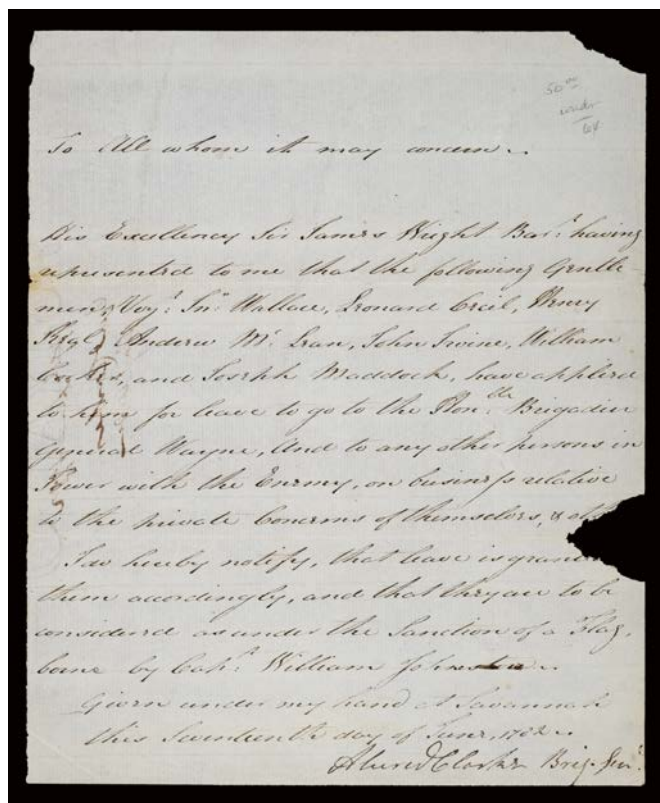 50 00
under
64
To All whom it may concern.
His Excellency Sir James Wright Bart. having
represented to me that the following Gentle
men, Vizt. Jno. Wallace, Leonard Cecil, Henry
Andrew Mc. Lean, John Irvine, William
and Joseph Maddock, have applied
to him for leave to go to the Honble. Brigadier
General Wayne, And to any other persons in
Power with the Enemy, on business relative
to the private Concerns of themselves, &
I do hereby notify, that leave is
them accordingly, and that they are to be
considered as under the Sanction of a Flag,
borne by Capt. William Johnston.
Given under my hand at Savannah
this Seventeenth day of June, 1782.
Alured Clarke Brig. Genl.